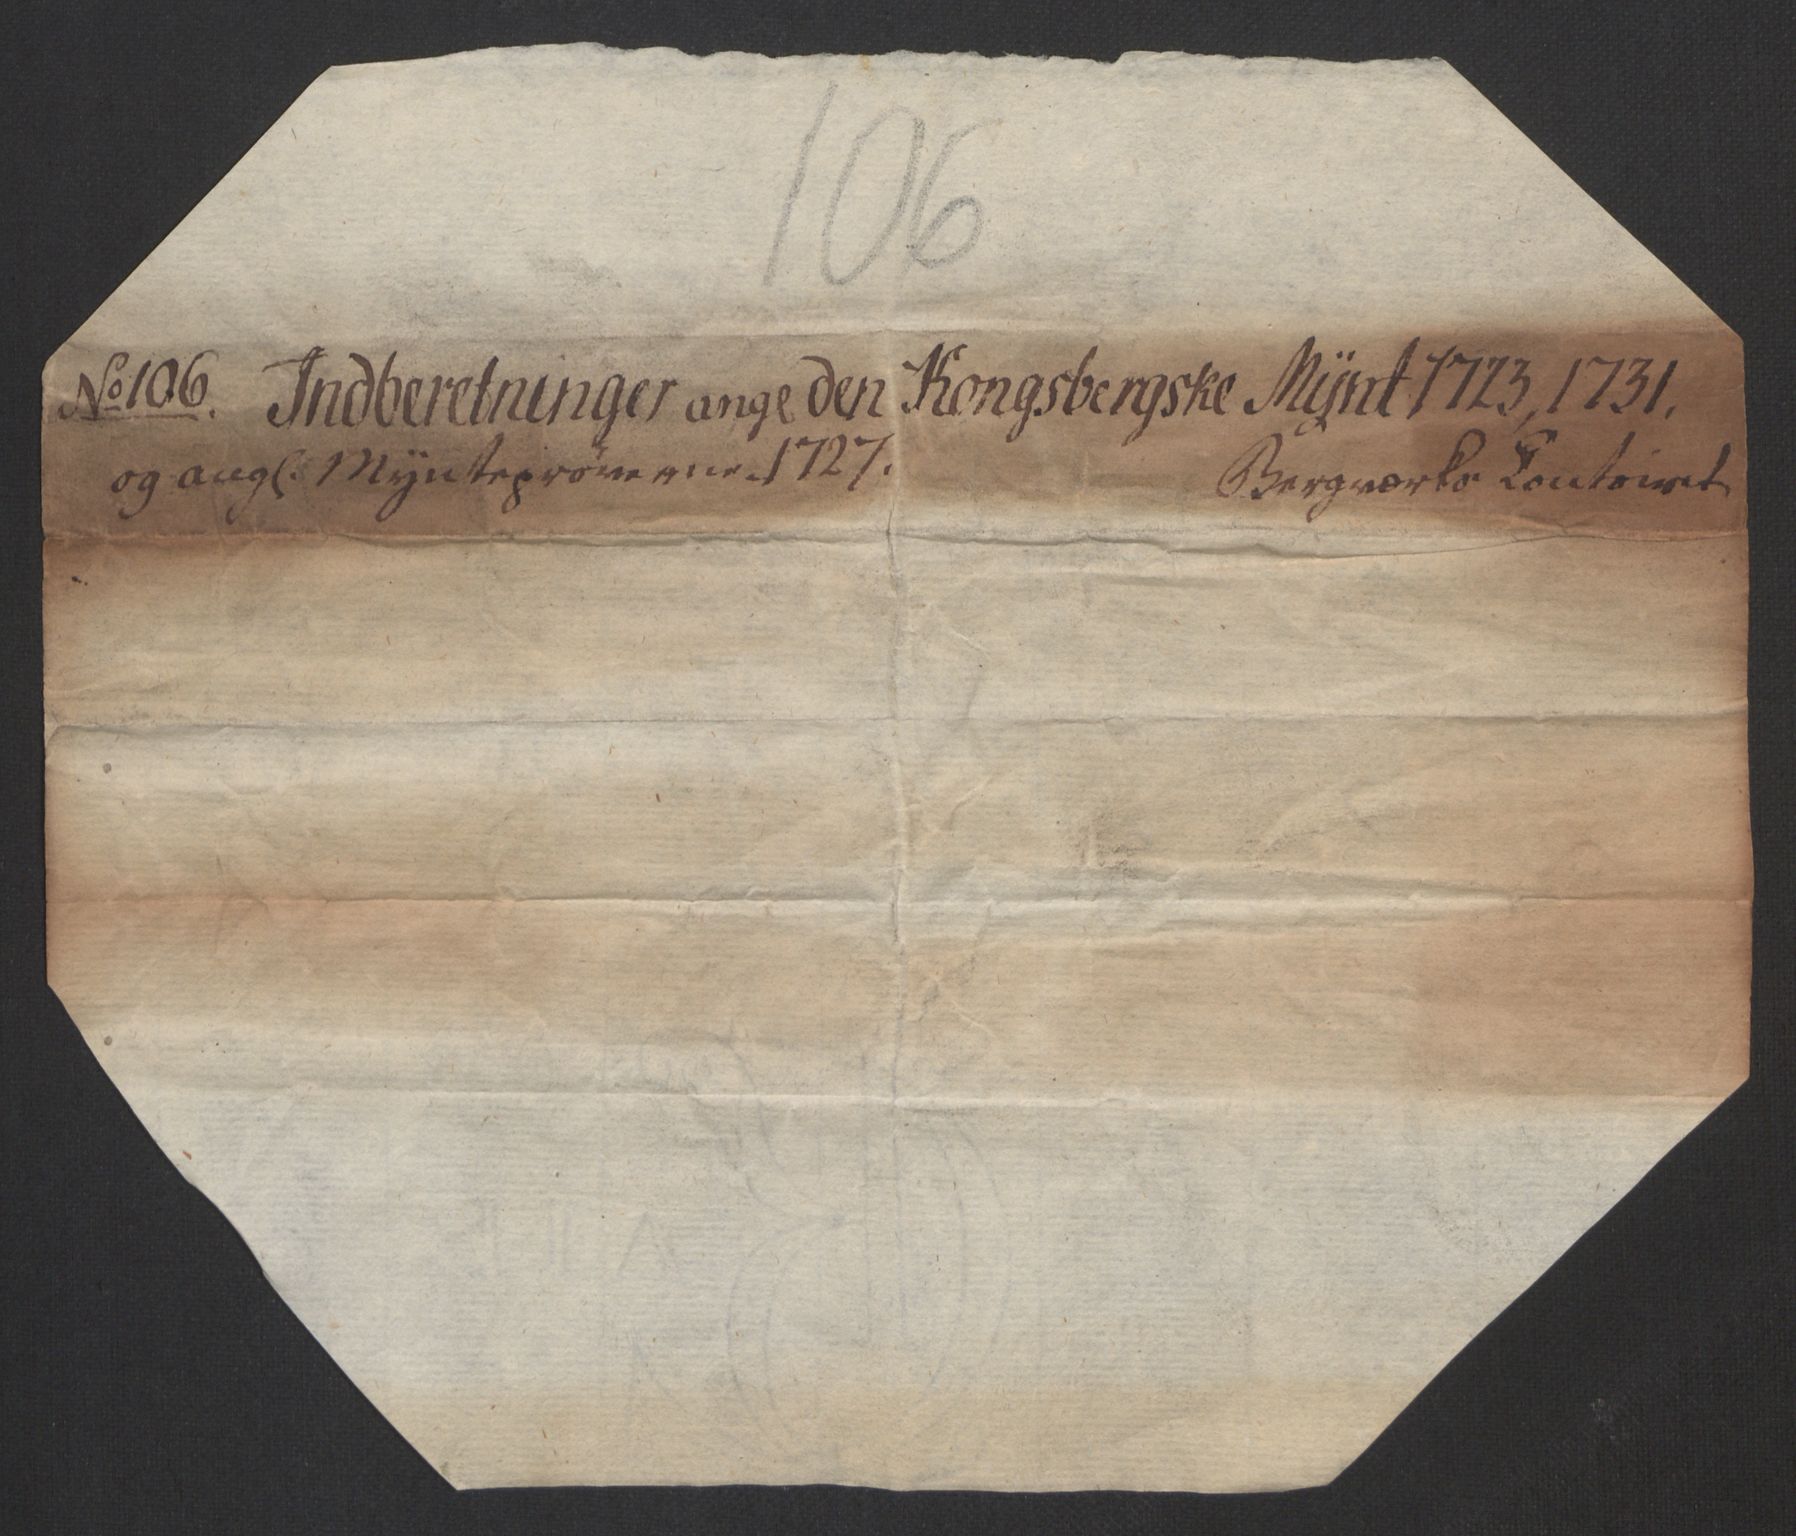 106
No 106. Indberetninger ange den Kongsbergske Mÿnt 1723, 1731.
og angl: Mÿnteprøverne 1727. Bergværks Contoiret